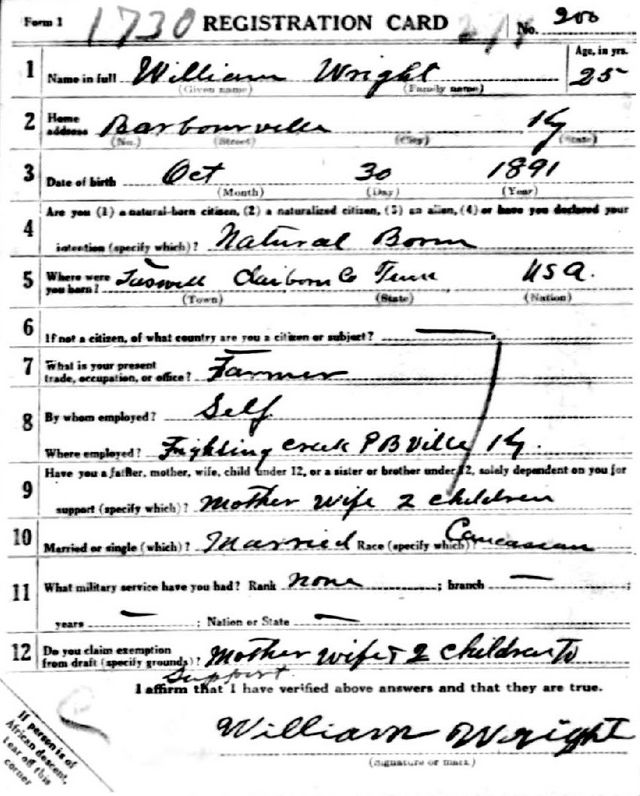 Form 1 1730 REGISTRATION CARD No. 200
1 Name in full William Wright Age, in yrs. 25
(Given name) (Family name)
2 Home address Barbourville Ky
(No.) (Street) (City) (State)
3 Date of birth Oct 30 1891
(Month) (Day) (Year)
Are you (1) a natural-born citizen, (2) a naturalized citizen, (3) an alien, (4) or have you declared your
4 intention (specify which)? Natural Born
5 Where were you born? Taswell Claiborn Co Tenn USA.
(Town) (State) (Nation)
6 If not a citizen, of what country are you a citizen or subject? —
7 What is your present trade, occupation, or office? Farmer
8 By whom employed? Self
Where employed? Fighting Creek P B Ville Ky.
Have you a father, mother, wife, child under 12, or a sister or brother under 12, solely dependent on you for
9 support (specify which)? Mother Wife 2 Children
10 Married or single (which)? Married Race (specify which)? Caucasian
11 What military service have you had? Rank None ; branch —
years — ; Nation or State —
12 Do you claim exemption from draft (specify grounds)? Mother Wife & 2 Children To
Support
I affirm that I have verified above answers and that they are true.
William Wright
(Signature or mark)
If person is of
African descent,
tear off this
corner